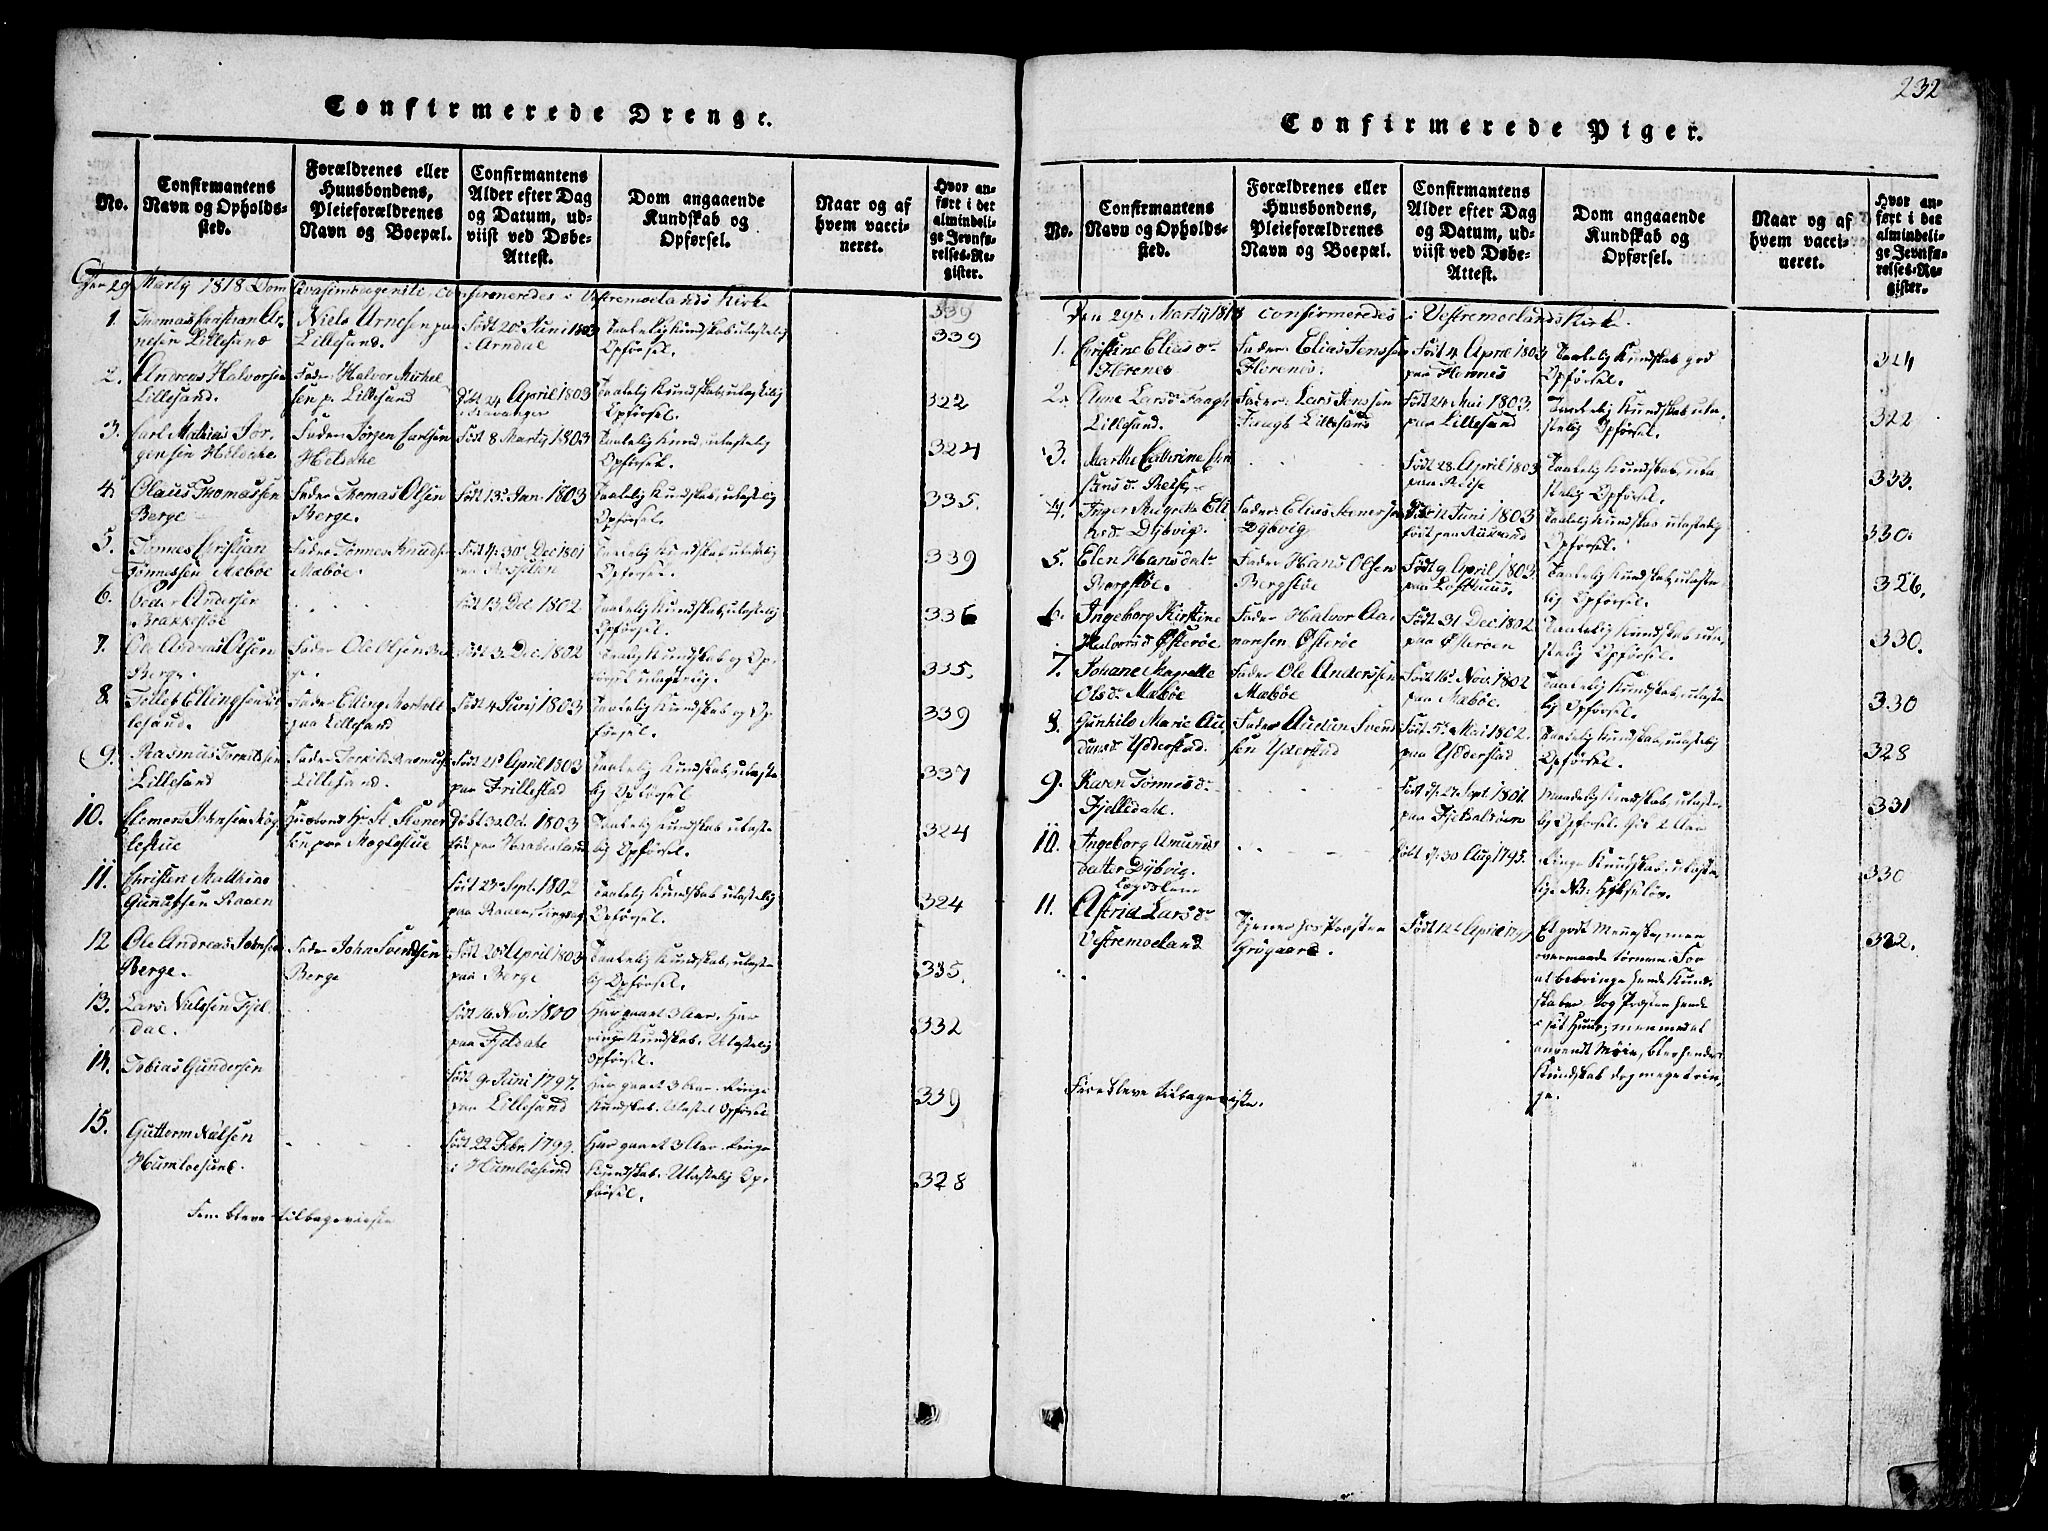 Confirmerede Drenge.
No.
Confirmantens
Navn og Opholds-
sted.
Forældrenes eller
Huusbondens,
Pleieforældrenes
Navn og Boepæl.
Confirmantens
Alder efter Dag
og Datum, ud-
viist ved Døbe-
Attest.
Dom angaaende
Kundskab og
Opførsel.
Naar og af
hvem vacci-
neret.
Hvor an-
ført i det
almindeli-
ge Jevnfø-
relses-Re-
gister.
29 Martÿ 1818 confirmeredes i Vestremoelands Kirke
339
1. Thomas Christian Ar-
nesen Lillesand
Niels Arnesen paa
Lillesand.
Født 20de Juni 1803
i Arndal
Taalelig Kundskab, ulastelig
Opførsel.
339
2. Andreas Halvorsen
Lillesand.
Fader Halvor Mickel
sen p. Lillesand
24 April 1803
i Stavanger
Taalelig Kundskab, ulastelig
Opførsel.
322
3. Carl Mathias Jør-
gensen Helldahe
Fader Jørgen Carlsen
Heldahe
Født 8 Marty 1803
Taalelig Kund, ulastelig
Opførsel.
324
4. Olaus Thomassen
Berge
Fader Thomas Olsen
Berge.
Født 13de Jan. 1803
Taalelig Kundskab, ulastelig
Opførsel.
335.
5. Tønnes Christian
Tønnessen Mæbøe
Fader Tønnes Knuds
Mæbøe.
Født d. 30te Dec 1801
Taalelig Kundskab ulastelig
Opførsel.
339
6. Peder Andersen
Brækkestøe
Født 13 Dec 1802
Taalelig Kundskab, ulastelig
Opførsel.
336
7. Ole Andreas Olsen
Berge.
Fader Ole Olsen Ber
ge.
Født 3. Dec. 1802
Taalelig Kundskab og Op
førsel ulastelig.
335.
8. Tellef Ellingsen Lil
lesand.
Fader Elling
paa Lillesand
Født 4 Junj 1803
Taalelig Kundskab og Op
førsel.
339
9. Rasmus Torkildsen
Lillesand
Fader Torkild Rasmus
Lillesand.
Født 21de April 1803
paa Frillestad
Taalelig Kundskab, ulaste
lig Opførsel
337
10. Clemen Johnsen Møg
lestue
Huusbond Hr St. Stener
sen paa Møglestue
Døbt 3 Oct. 1803
Taalelig Kundskab ulaste
lig Opførsel.
324
11. Christen Matthias
Gundersen Raaen
Født 27de Sept. 1802
paa Raaen
Taalelig Kundskab ulastelig
Opførsel.
324
12 Ole Andreas Johnsen
Berge.
Fader John Svendsen
Berge
Født 20de April 1803
paa Berge
Taalelig Kundskab, ulaste
lig Opførsel.
335.
13. Lars Nielsen Fjel-
dal.
Født 16 Nov. 1800
paa Fjeldahl
Har gaaet 3 Aar. Har
ringe Kundskab. Ulastelig
Opførsel.
332
14. Tobias Gundersen
Født 9. Juni 1797.
paa Lillesand
Har gaaet 3 Aar. Ringe
Kundskab. Ulastel Opførsel
339
15. Guttorm Nielsen
Humlesund.
Født 22 Febr. 1799.
i Humløesund
Har gaaet 3 Aar. Ringe
Kundskab. Ulastelig Op-
førsel.
328
Fem bleve tilbageviiste
232
Confirmerede Piger.
No.
Confirmantens
Navn og Opholds-
sted.
Forældrenes eller
Huusbondens,
Pleieforældrenes
Navn og Boepæl.
Confirmantens
Alder efter Dag
og Datum, ud-
viist ved Døbe-
Attest.
Dom angaaende
Kundskab og
Opførsel.
Naar og af
hvem vacci-
neret.
Hvor an-
ført i det
almindeli-
ge Jevnfø-
relses-Re-
gister.
Den 29de Marty 1818 confirmeredes i Vestremoelands Kirke.
1. Christine Eliasdr
Hørenes
Fader Elias Jenssen
Hørenes.
Født 4 April 1803
paa Hørenes
Taalelig Kundskab god
Opførsel.
324
2. Anne Larsd
Lillesand.
Fader Lars Jenssen
Lillesand
Født 24 Mai 1803.
paa Lillesand
Taalelig Kundskab ula-
stelig Opførsel.
322
3. Marthe Cathrine
Født 28 April 1803
Taalelig Kundskab, ula
stelig Opførsel.
333.
4. Inger Magrete Eli
asd. Dybvig.
Fader Elias
Dybvig
12 Juni 1803
Taalelig Kundskab ulastelig
Opførsel.
330.
5. Elen Hansdatr
Bergstøe.
Fader Hans Olsen
Bergstøe
Født 9 April 1803.
paa Lofthuus.
Taalelig Kundskab, ulaste
lig Opførsel.
326.
6. Ingeborg Kirstine
Halvorsd Østerøe
Fader Halvor Aa-
nonsen Østerøe
Født 31 Dec. 1802.
paa Østerøen
Taalelig Kundskab ula-
stelig Opførsel.
330.
7. Johane Magrethe
Olsd. Mæbøe
Fader Ole Anderssen
Mæbøe
Født 16de Nov. 1802
paa Mæbøe.
Taalelig Kundskab, ulaste
lig Opførsel.
330
8. Gunhild Marie Au
dunsd. Ydderstad.
Fader Audun Svend
sen Yderstad
Født 5te Mai 1802.
paa Ydderstad
Taalelig Kundskab, ulastelig
Opførsel.
328
9. Karen Tønnesdr
Fjelledahl.
Født d. 27 Sept. 1801.
paa
Maadelig Kundskab, ulaste-
lig Opførsel. Gik 2 Aar
331
10. Ingeborg Amunds
datter Dybvig.
Lægdslem
Født d. 30 Aug 1795.
Ringe Kundskab ulaste-
lig.
330
11. Astrid Larsdr
Vestremoeland
Tjener hos Præsten
Grøgaard.
Født 12te April
Et godt Menneske, men
overmaade tornem. For
at bebringe hende Kund-
skaber tog Præsten hende
i sit Huus; men uagtet al
anvendt Møie, blev hendes
Kundskab dog meget rin-
ge.
322.
Fire bleve tilbageviste.